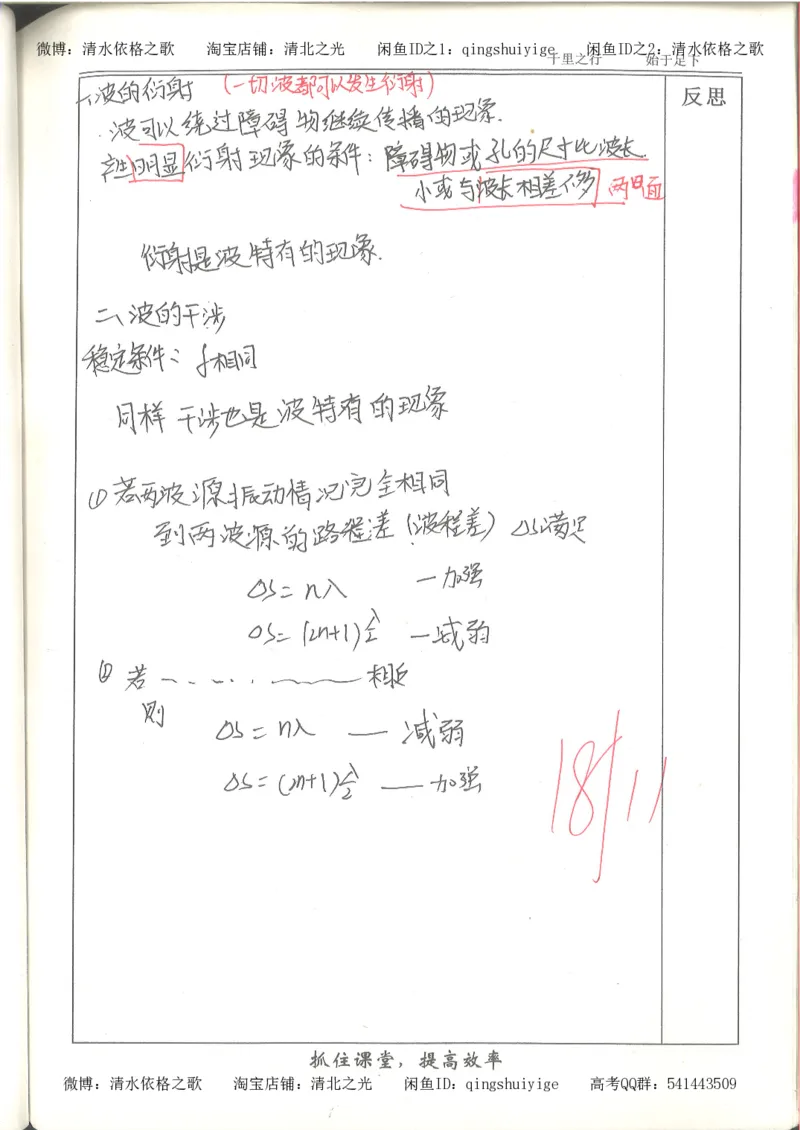 微博：清水依格之歌 淘宝店铺：清北之光 闲鱼ID之1：qingshuiyige 闲鱼ID之2：清水依格之歌
千里之行 始于足下
反思
一、波的衍射 （一切波都可以发生衍射）
波可以绕过障碍物继续传播的现象.
产生明显衍射现象的条件：障碍物或孔的尺寸比波长
小或与波长相差不多 两日面
衍射是波特有的现象.
二、波的干涉
稳定条件：f相同
同样 干涉也是波特有的现象
① 若两波源振动情况完全相同
到两波源的路程差（波程差）Δs满足
Δs=nλ —加强
Δs=(2n+1)λ/2 —减弱
② 若 相反
则
Δs=nλ —减弱
Δs=(2n+1)λ/2 —加强
18/11
抓住课堂，提高效率
微博：清水依格之歌 淘宝店铺：清北之光 闲鱼ID：qingshuiyige 高考QQ群：541443509